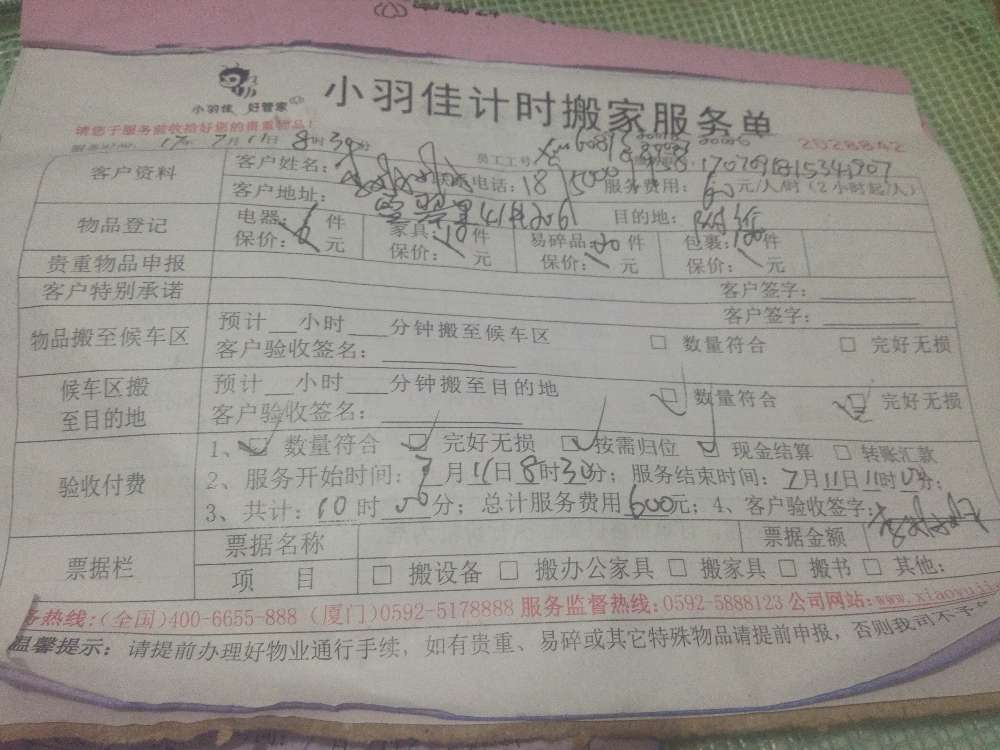 小羽佳 好管家
小羽佳计时搬家服务单
请您于服务前收拾好您的贵重物品!
17年 7月11日 8时30分 员工工号 2028842
客户资料 客户姓名: 联系电话:18 服务费用:60元/人/时(2小时起/人)
客户地址: 目的地:
物品登记 电器:6件 家具:10件 易碎品: 件 包裹:100件
保价: 元 保价: 元 保价: 元 保价: 元
贵重物品申报 客户签字:
客户特别承诺 客户签字:
物品搬至候车区 预计 小时 分钟搬至候车区 □ 数量符合 □ 完好无损
客户验收签名:
候车区搬至目的地 预计 小时 分钟搬至目的地 ☑ 数量符合 ☑ 完好无损
客户验收签名:
验收付费 1、☑ 数量符合 ☑ 完好无损 ☑ 按需归位 ☑ 现金结算 □ 转账汇款
2、服务开始时间:7月11日8时30分;服务结束时间:7月11日11时 分;
3、共计:10时00分;总计服务费用600元;4、客户验收签字:
票据栏 票据名称 票据金额
项 目 □ 搬设备 □ 搬办公家具 □ 搬家具 □ 搬书 □ 其他:
务热线:(全国)400-6655-888 (厦门)0592-5178888 服务监督热线:0592-5888123 公司网站:www.xiaoyuji
温馨提示:请提前办理好物业通行手续,如有贵重、易碎或其它特殊物品请提前申报,否则我司不予